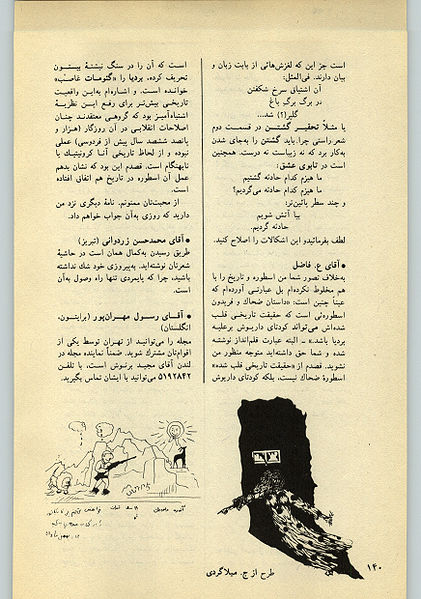 است جز این که لغزش‌هائی از بابت زبان و
بیان دارند. فی‌المثل:
آن اشنیای سرخ شکفتن
در برگ برگ باغ
گلبر(؟) شد...
یا مثلاً تحقیر گشتن در قسمت دوم
شعر. راستی چرا باید گشتن را به‌جای شدن
به‌کار برد که نه زیباست نه درست. همچنین
است در تابوی عشق:
ما هیزم کدام حادثه گشتیم
ما هیزم کدام حادثه می‌گردیم؟
و چند سطر پائین‌تر:
بیا آتش شویم
حادثه گردیم.
لطف بفرمائیدو این اشکالات را اصلاح کنید.
● آقای ع. فاضل
به‌خلاف تصور شما من اسطوره و تاریخ را با
هم مخلوط نکرده‌ام بل عبارتی آورده‌ام که
عیناً چنین است: «داستان ضحاك و فریدون
اسطوره‌ئی است که حقیقت تاریخی قلب
شده‌اش می‌تواند کودتای داریوش برعلیه
بردیا باشد.» ـ البته عبارت قلم‌انداز نوشته
شده و شما حق داشته‌اید متوجه منظور من
نشوید. قصدم از «حقیقت تاریخی قلب شده»
اسطورهٔ ضحاك نیست، بلکه کودتای داریوش
است که آن را در سنگ نبشتهٔ بیستون
تحریف کرده، بردیا را «گئومات غاصب»
خوانده است. و اشاره‌ام به‌این واقعیت
تاریخی بیش‌تر برای رفع این نظریهٔ
اشتباه‌آمیز بود که گروهی معتقدند چنان
اصلاحات انقلابی در آن روزگار (هزار و
پانصد ششصد سال پیش از فردوسی) عملی
نبوده و از لحاظ تاریخی آنا کرونیتیك یا
نابهنگام است. قصدم این بود که نشان بدهم
عمل آن اسطوره در تاریخ هم اتفاق افتاده
است.
از محبت‌تان ممنونم. نامهٔ دیگری نزد من
دارید که روزی به‌آن جواب خواهم داد.
● آقای محمدحسن زردوانی (تبریز)
طریق رسیدن به‌کمال همان است در حاشیهٔ
شعرتان نوشته‌اید. به‌پیروزی خود شك نداشته
باشید، چرا که پایمردی تنها راه وصول به‌آن
است.
● آقای رسول مهران‌پور (برایتون،
انگلستان)
مجله را می‌توانید از تهران توسط یکی از
اقوام‌تان مشترك شوید. ضمناً نماینده مجله در
لندن آقای مجید برنوش است، با تلفن
۵۱۹۲۸۴۲ می‌توانید با ایشان تماس بگیرید.
طرح از ج. میلاگردی
۱۴۰